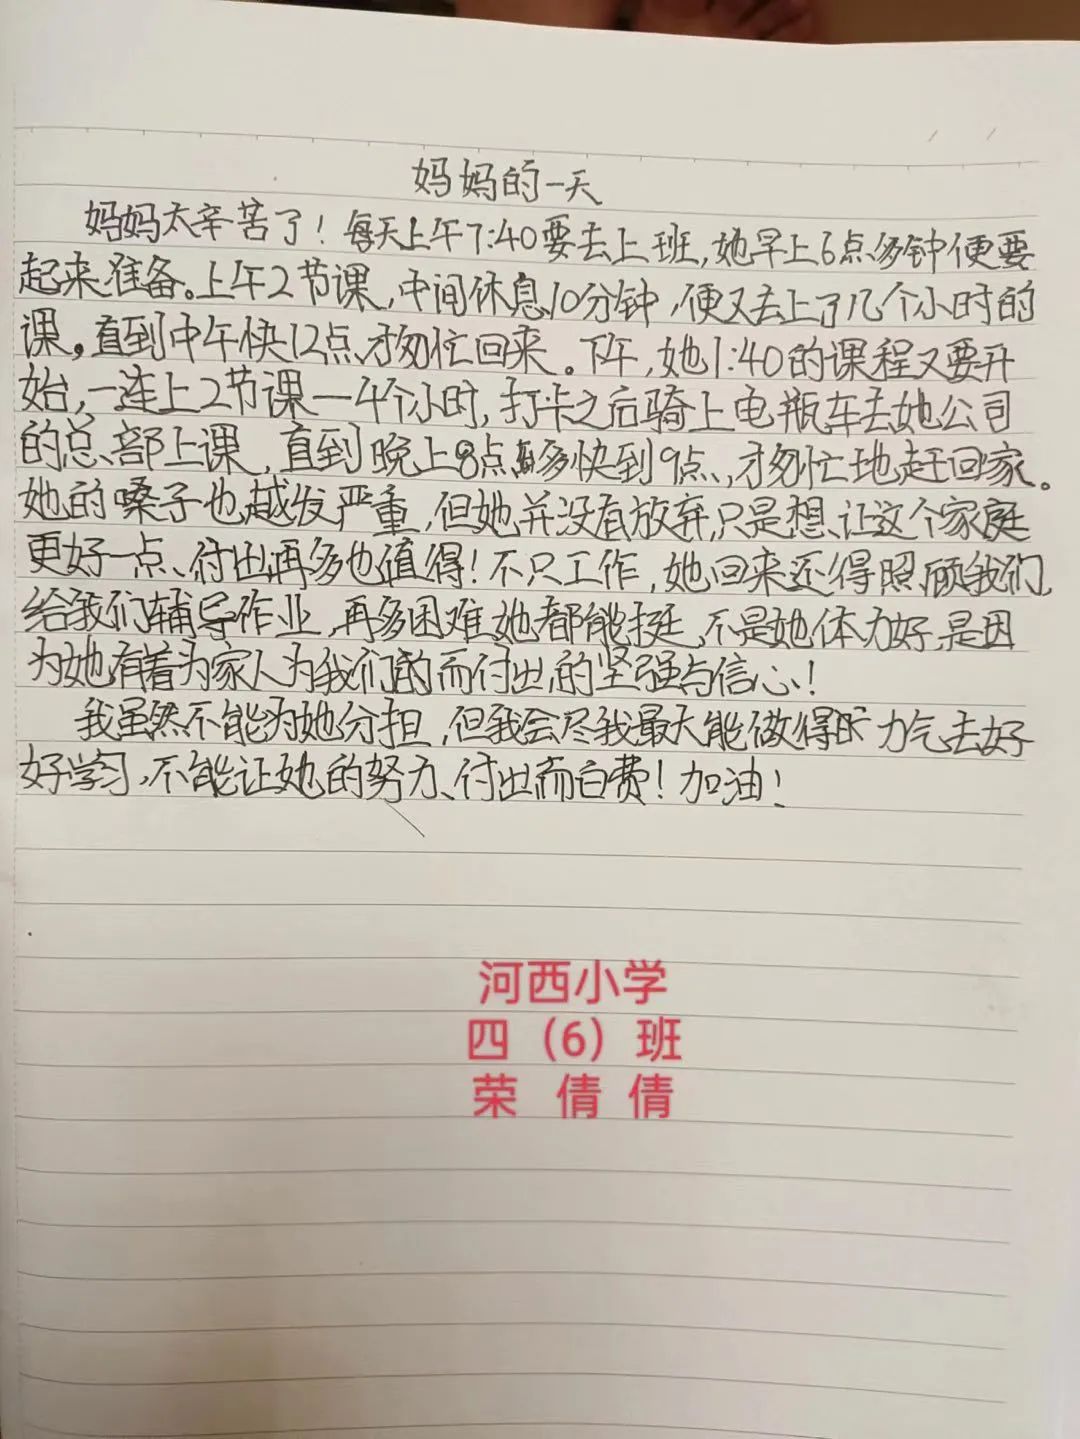 妈妈的一天
妈妈太辛苦了！每天上午7:40要去上班,她早上6点多钟便要
起来准备。上午2节课,中间休息10分钟,便又去上了几个小时的
课。直到中午快12点,才匆忙回来。下午,她1:40的课程又要开
始,一连上2节课一4个小时,打卡之后骑上电瓶车去她公司
的总部上课,直到晚上8点多快到9点,才匆忙地赶回家。
她的嗓子也越发严重,但她并没有放弃,只是想让这个家庭
更好一点、付出再多也值得!不只工作,她回来还得照顾我们,
给我们辅导作业,再多困难她都能挺,不是她体力好,是因
为她有着为家人为我们而付出的坚强与信心!
我虽然不能为她分担,但我会尽我最大能做得 力气去好
好学习,不能让她的努力、付出而白费!加油!
河西小学
四（6）班
荣 倩 倩